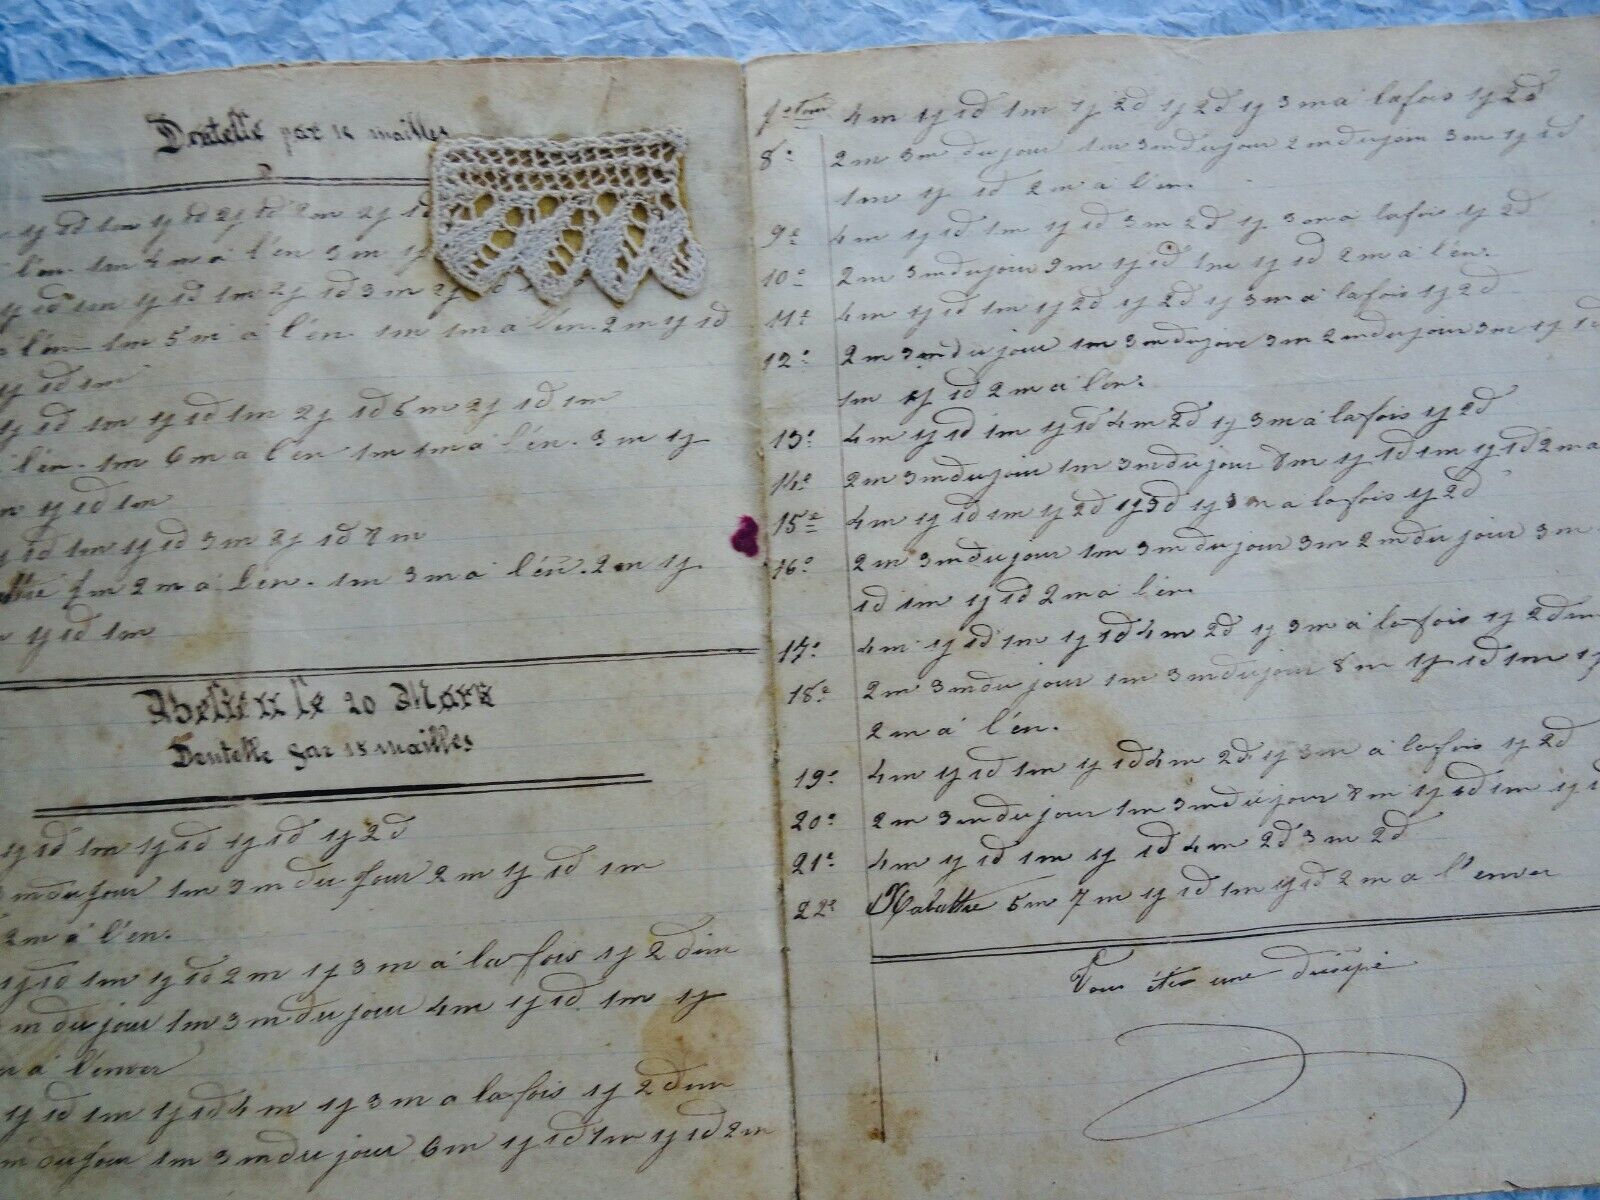 Dentelle par 14 mailles
1j 1d 1m 1j 1d 2j 1d 2m 2j 1d
l'en. 1m 4m à l'én 3m 1j
1j 1d 1m 1j 1d 1m 2j 1d 3m 2j
l'én 1m 5m à l'én. 1m 1m à l'én. 2m 1j 1d
1j 1d 1m
1j 1d 1m 1j 1d 1m 2j 1d 5m 2j 1d 1m
l'én. 1m 6m a l'én 1m 1m à l'én. 3m 1j
1j 1d 1m
1j 1d 1m 1j 1d 3m 2j 1d 8m
2m à l'én. 1m 3m à l'én. 2m 1j
1j 1d 1m
le 20 Mars
Dentelle par 18 mailles
1j 1d 1m 1j 1d 1j 1d 1j 2d
3m du jour 1m 3m du jour 2m 1j 1d 1m
2m à l'én.
1j 1d 1m 1j 1d 2m 1j 3m à la fois 1j 2d 1m
m du jour 1m 3m du jour 4m 1j 1d 1m 1j
m à l'enver
1j 1d 1m 1j 1d 4m 1j 3m a la fois 1j 2d 1m
m du jour 1m 3m du jour 6m 1j 1d 1m 1j 1d 2m
7e tour 4m 1j 1d 1m 1j 2d 1j 2d 1j 3m à la fois 1j 2d
8e 2m 3m du jour 1m 3m du jour 2m du jour 3m 1j 1d
1m 1j 1d 2m à l'én.
9e 4m 1j 1d 1m 1j 1d 2m 2d 1j 3m à la fois 1j 2d
10e 2m 3m du jour 9m 1j 1d 1m 1j 1d 2m à l'én.
11e 4m 1j 1d 1m 1j 2d 1j 2d 1j 3m à la fois 1j 2d
12e 2m 3m du jour 1m 3m du jour 3m 2m du jour 3m 1j 1d
1m 1j 1d 2m à l'én.
13e 4m 1j 1d 1m 1j 1d 4m 2d 1j 3m à la fois 1j 2d
14e 2m 3m du jour 1m 3m du jour 8m 1j 1d 1m 1j 1d 2m a
15e 4m 1j 1d 1m 1j 2d 1j 3d 1j 3m a la fois 1j 2d
16e 2m 3m du jour 1m 3m du jour 3m 2m du jour 3m
1d 1m 1j 1d 2m à l'én
17e 4m 1j 1d 1m 1j 1d 4m 2d 1j 3m à la fois 1j 2d 1m
18e 2m 3m du jour 1m 3m du jour 8m 1j 1d 1m 1j
2m à l'én.
19e 4m 1j 1d 1m 1j 1d 4m 2d 1j 3m à la fois 1j 2d
20e 2m 3m du jour 1m 3m du jour 8m 1j 1d 1m 1j 1
21e 4m 1j 1d 1m 1j 1d 4m 2d 3m 2d
22e Rabattre 5m 7m 1j 1d 1m 1j 1d 2m a l'enver
Vous êtes une